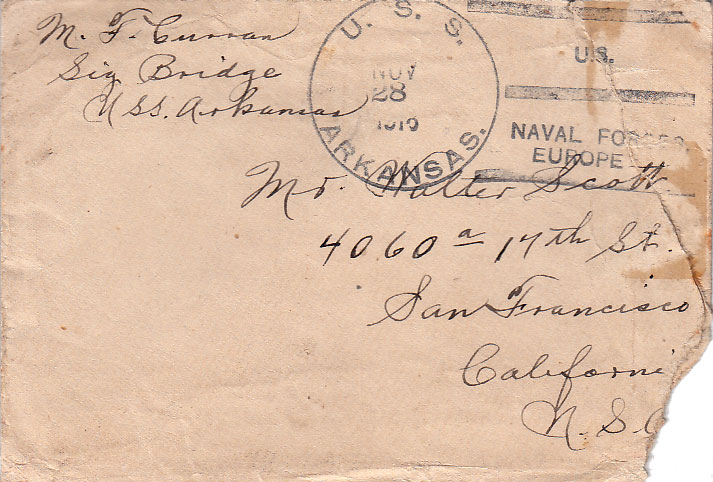 M. F. Curran
Sig Bridge
USS. Arkansas
U. S. S.
NOV
28
ARKANSAS.
U.S.
NAVAL FORCES
EUROPE
Mr. Walter Scott
4060 a 17th St.
San Francisco
Californi